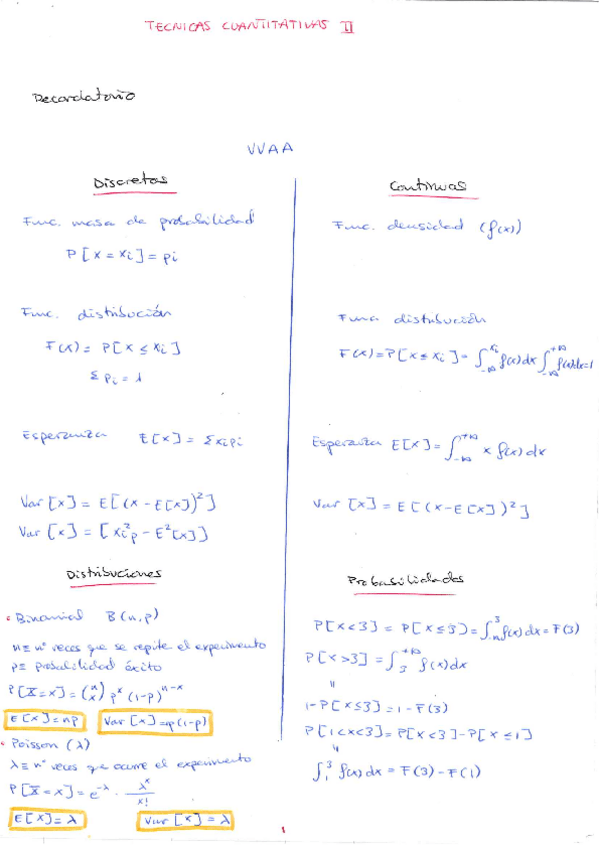 TECNICAS CUANTITATIVAS II
Recordatorio
VVAA
Discretas
Func. masa de probabilidad
P[X = xi] = pi
Func. distribución
F(x) = P[X ≤ xi]
Σ pi = 1
Esperanza E[x] = Σxipi
Var [x] = E[(x - E[x])²]
Var [x] = [xi²p - E²[x]]
Distribuciones
• Binomial B(n,p)
n ≡ nº veces que se repite el experimento
p ≡ probabilidad éxito
P[X = x] = (n x) p^x (1-p)^n-x
E[x] = np Var [x] = np(1-p)
• Poisson (λ)
λ ≡ nº veces que ocurre el experimento
P[X = x] = e^-λ · λ^x / x!
E[X] = λ Var [x] = λ
Continuas
Func. densidad (f(x))
Func distribución
F(x) = P[x ≤ xi] = ∫_-∞^xi f(x)dx ∫_-∞^+∞ f(x)dx=1
Esperanza E[x] = ∫_-∞^+∞ x f(x) dx
Var [x] = E[(x - E[x])²]
Probabilidades
P[x<3] = P[x≤3] = ∫_-∞^3 f(x)dx = F(3)
P[x>3] = ∫_3^+∞ f(x)dx
=
1 - P[x≤3] = 1 - F(3)
P[1<x<3] = P[x<3] - P[x≤1]
=
∫_1^3 f(x)dx = F(3) - F(1)
1